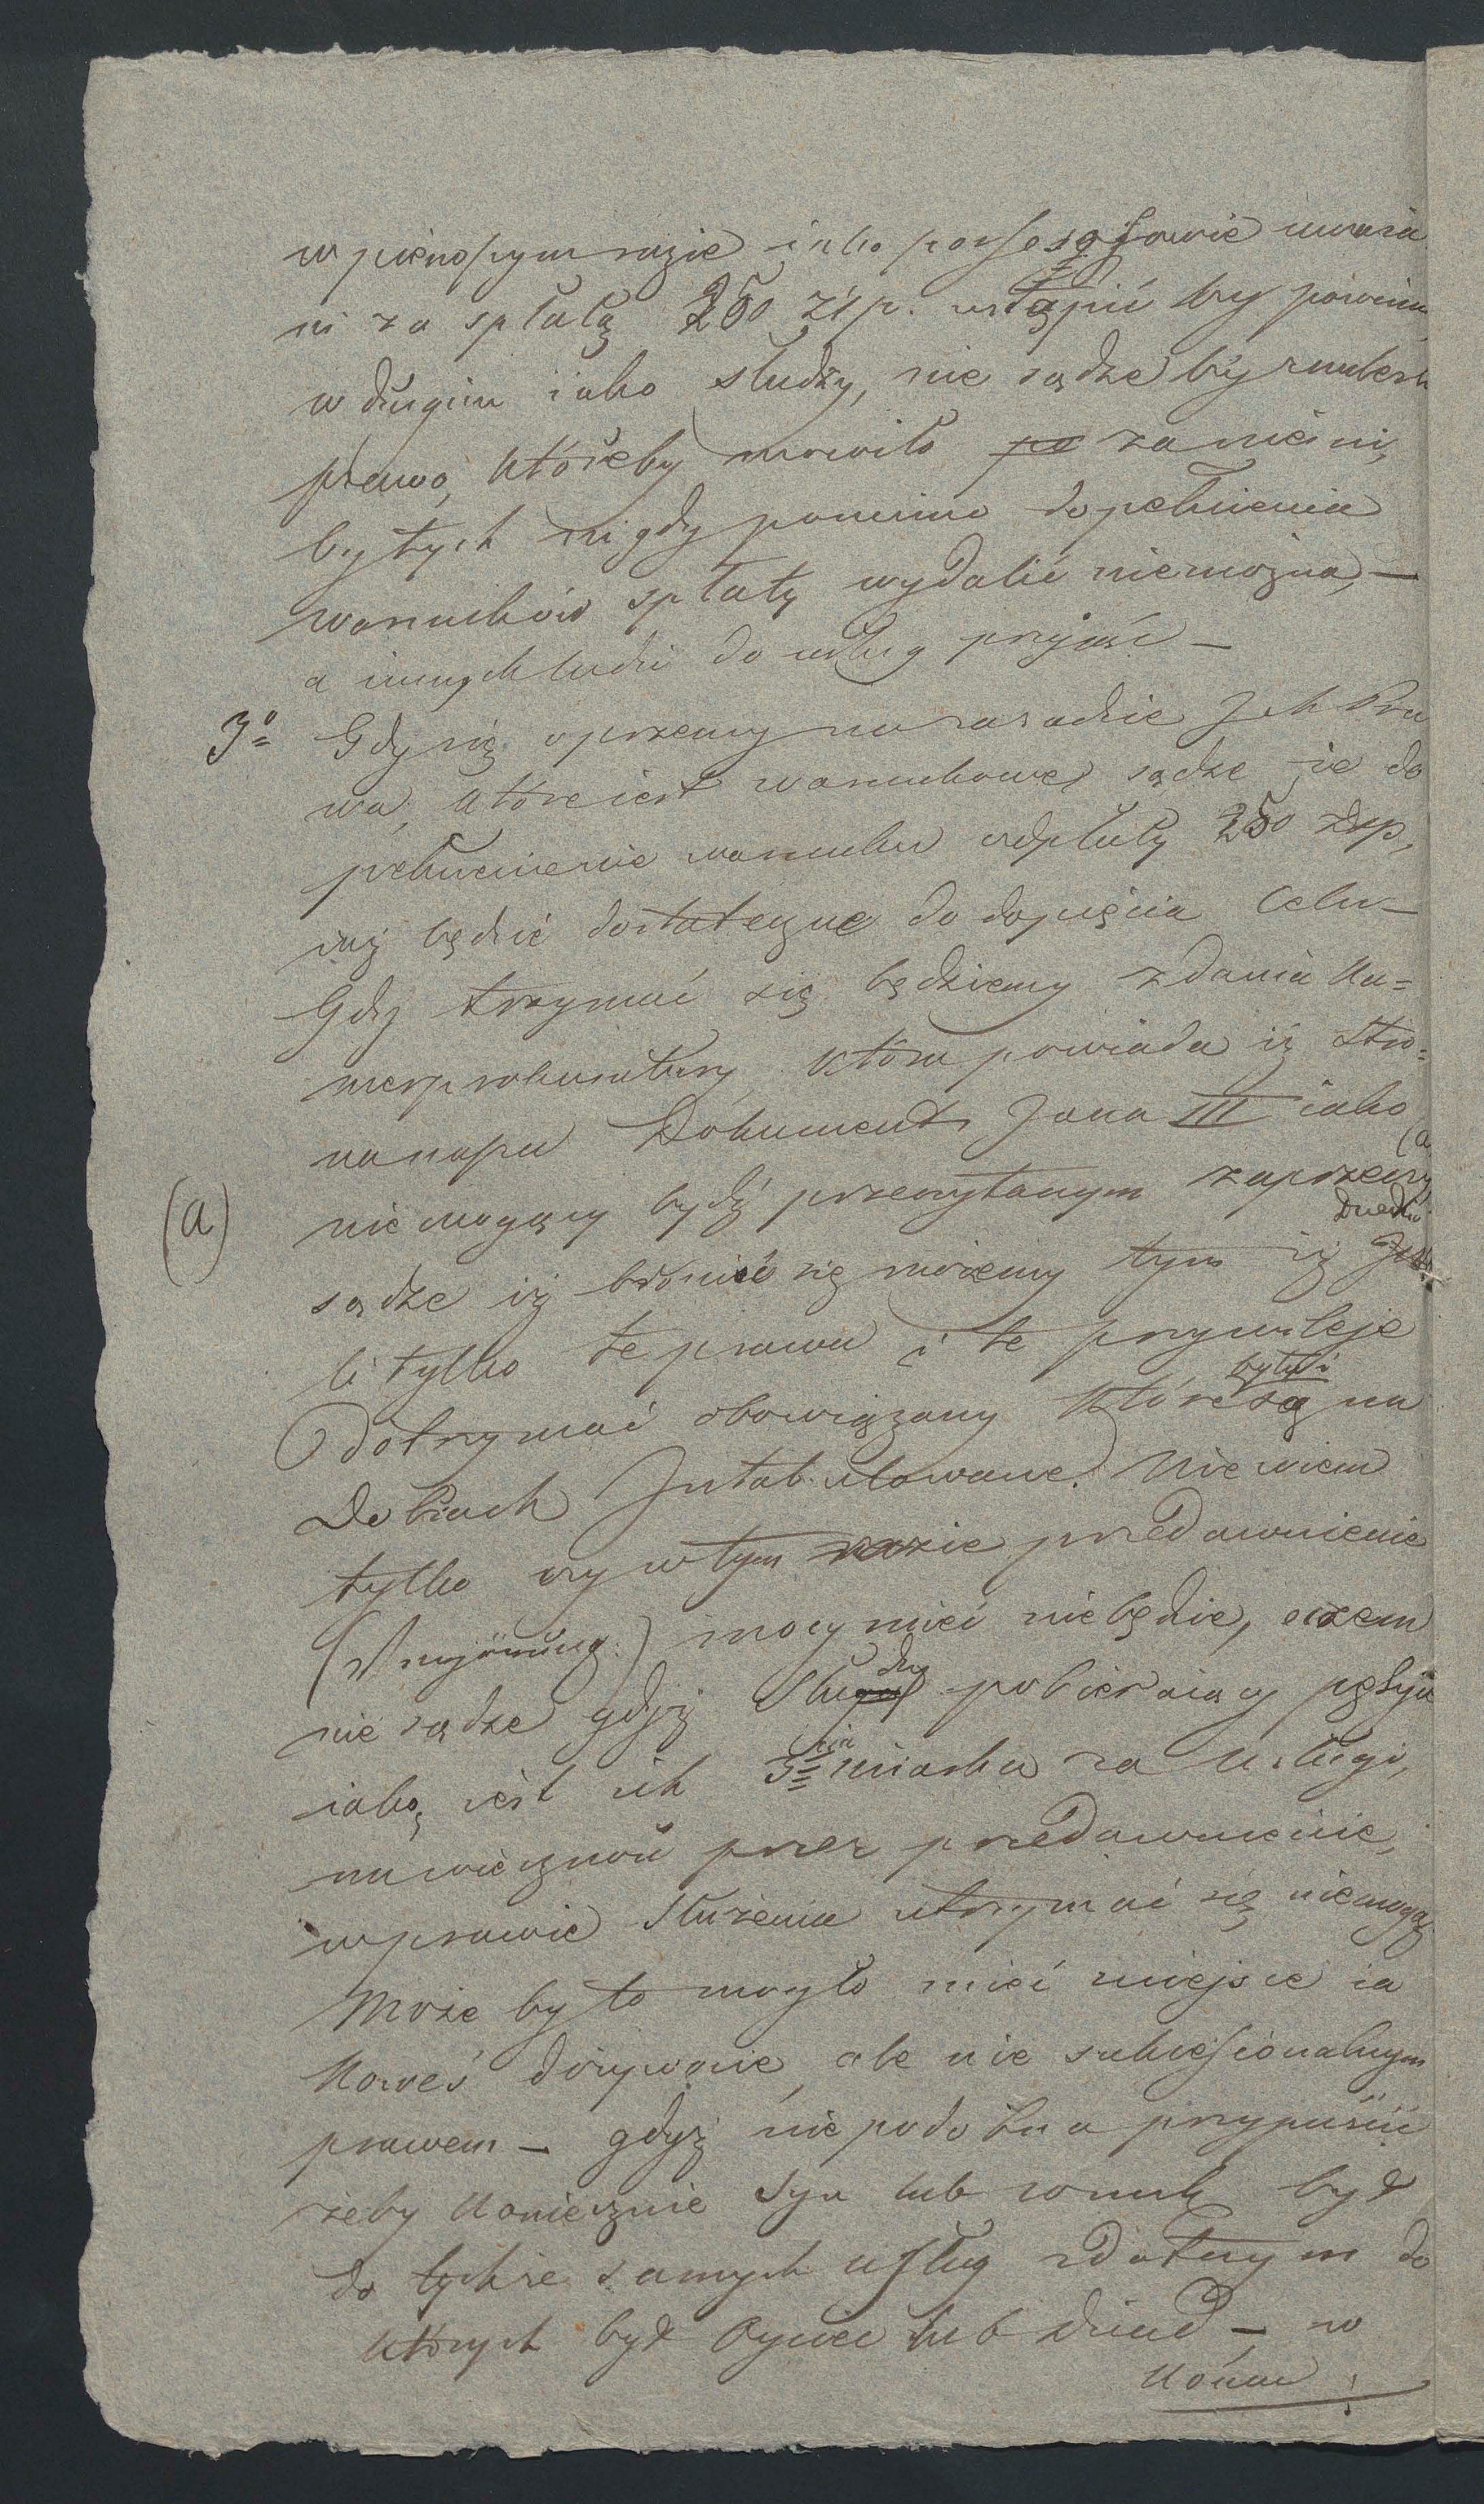 w pierwszym razie jako possessorowie uważa
ni za spłatą 250 Złp. ustąpić by powinni
w drugim jako słudzy, nie sądzę by znalazł
prawo, któreby mówiło za niemi,
by tych nigdy pomimo dopełnienia
warunków spłaty wydalić niemożna, —
a innych ludzi do usług przyjąć —
3o Gdy się oprzemy na zasadzie Ich Pra
wa, które iest warunkowe, sądzę że do
pełnienie warunku odpłaty 250 Złp,
już będzie dostateczne do dopięcia Celu —
Gdy trzymać się będziemy zdania Ka=
merprokuratury, która powiada iż Stro=
na napu Dokument Jana III iako (a
(a) nie mogący bydź przeczytanym zaprzeczy
Dziedzic
sądzę iż bronić się możemy tym iż
li tylko te prawa i te przywileje
były i
Dotrzymać obowiązany które są na
Dobrach Intabulowane. Nie wiem
tylko czy w tym razie przedawnienie
(Verjährung) mocy mieć nie będzie, oczem
dzy
nie sądzę gdyż Słu pobieraiący pęsyą
iaką iest ich 3cia miarka za usługi,
na wieczność przez przedawnienie,
w prawie służenia utrzymać się niemogą
Może by to mogło mieć miejsce ia
koweś dożywocie, ale nie sukcessionalnym
prawem — gdyż niepodobna przypuścić
żeby koniecznie syn lub wnuk był
do tychże samych usług zdatnym do
których był Oyciec lub dziad —, w
końcu